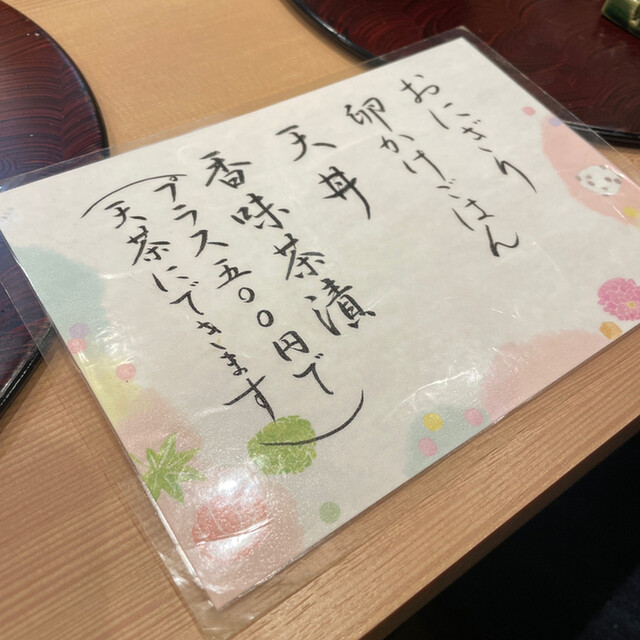 おにぎり
卵かけごはん
天丼
香味茶漬
(プラス五〇〇円で
天茶にできます)